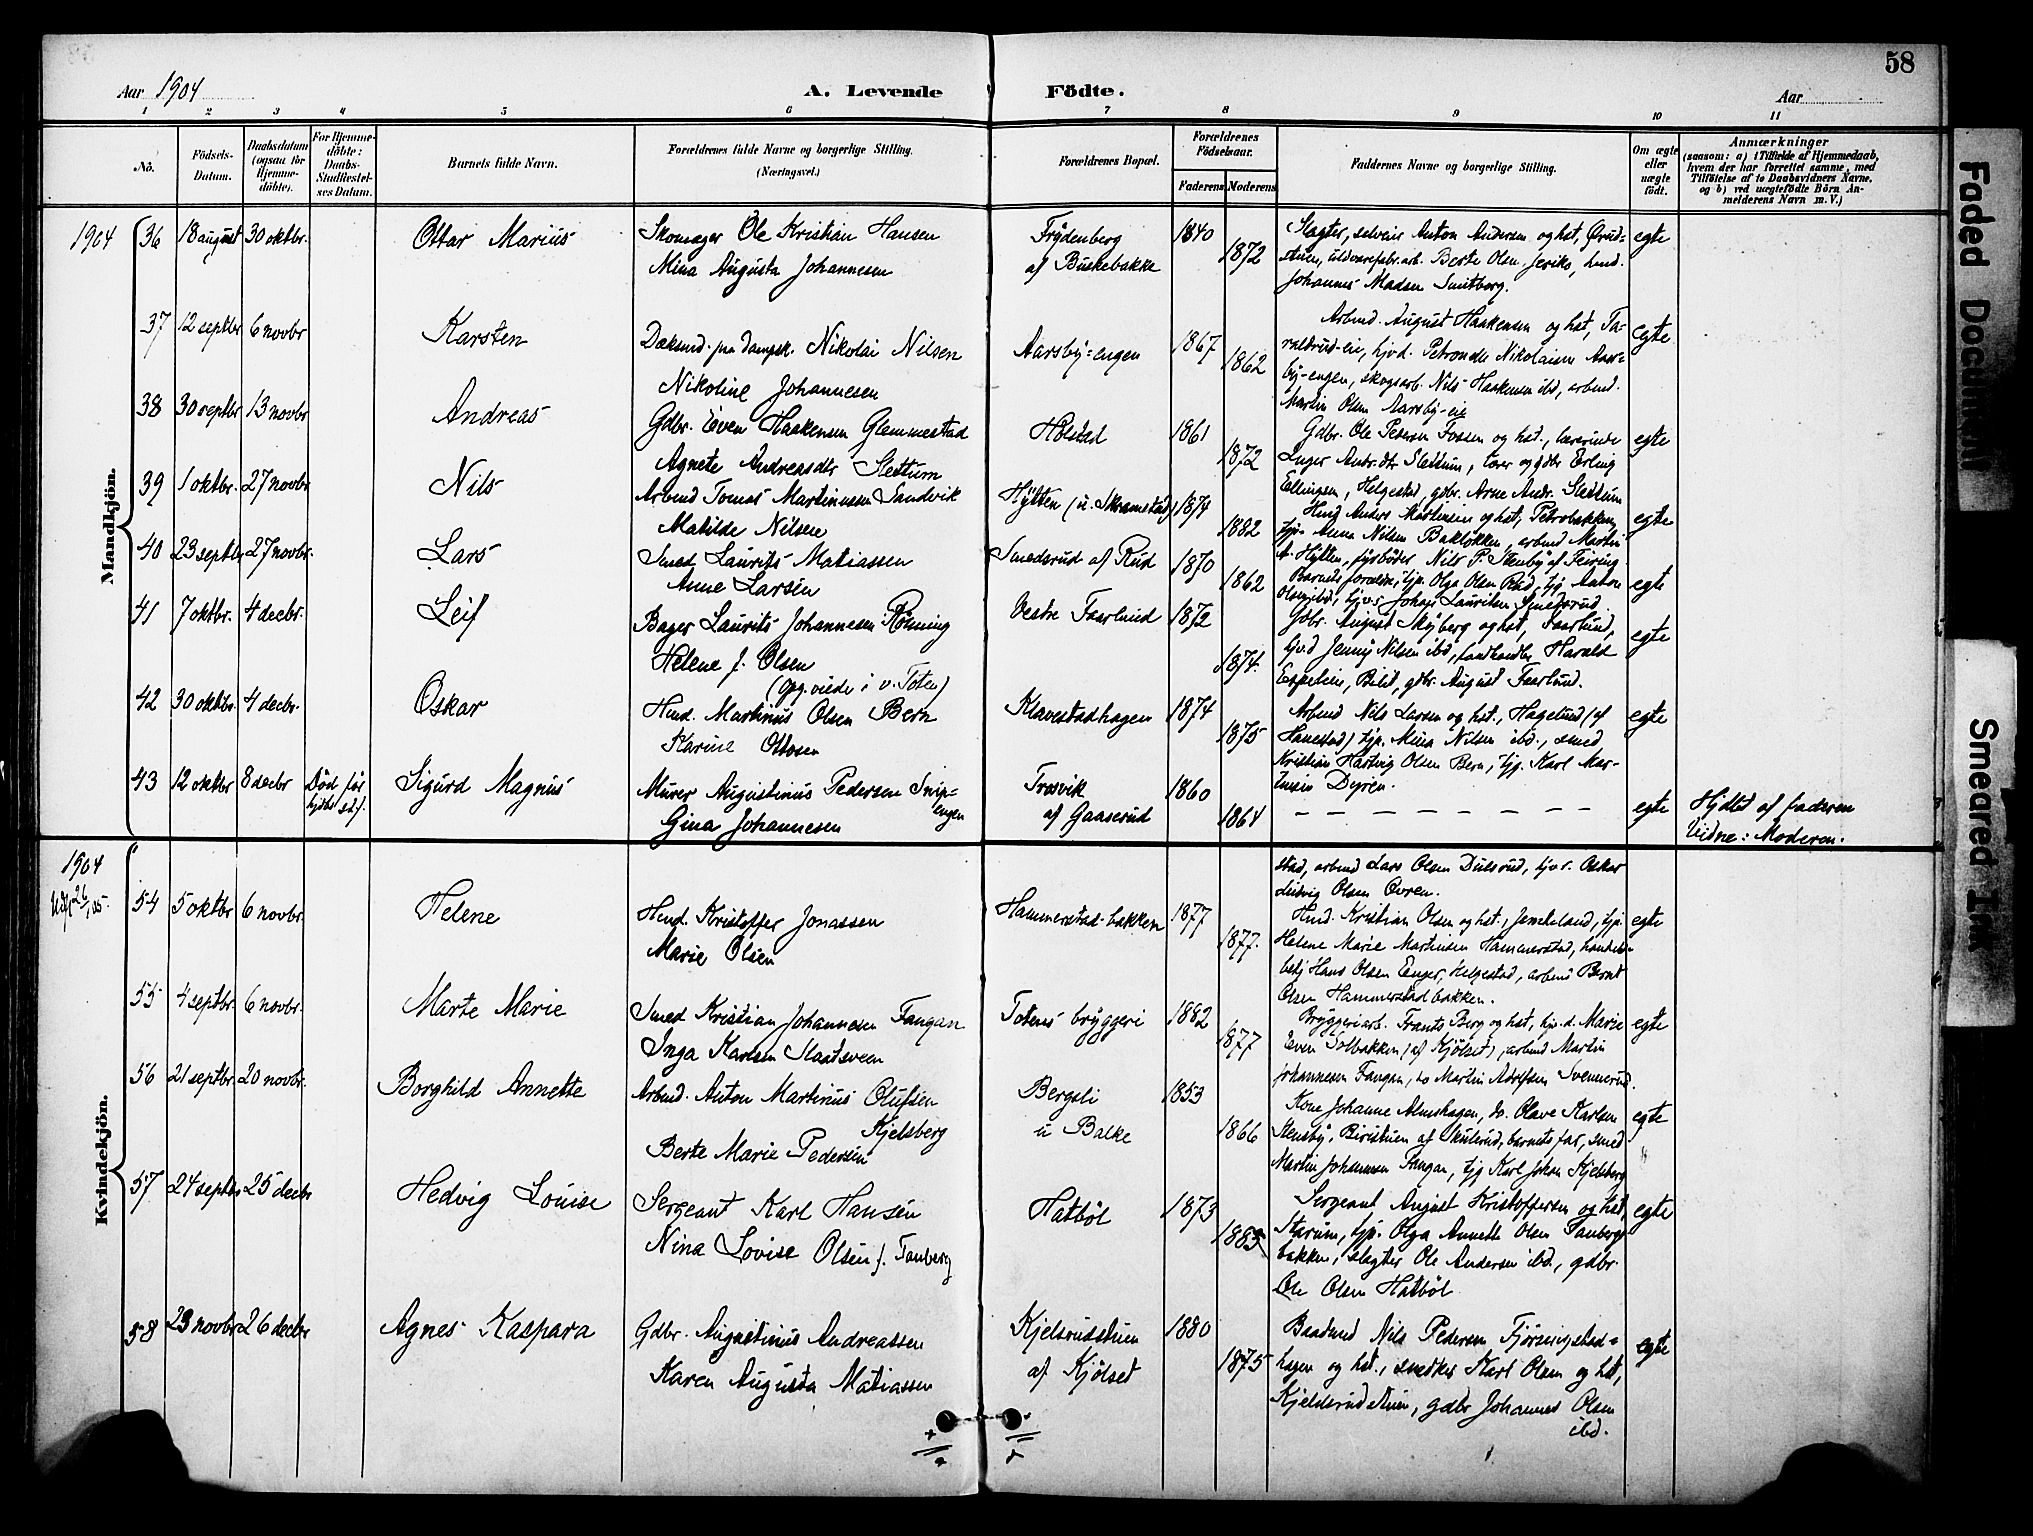 58
Aar 1904
A. Levende Födte.
Aar
1 2 3 4 5 6 7 8 9 10 11
No.
Födsels-Datum.
Daabsdatum (ogsaa for Hjemme-döbte).
For Hjemme-döbte: Daabs-Stadfæstel-ses Datum.
Barnets fulde Navn.
Forældrenes fulde Navne og borgerlige Stilling. (Næringsvei.)
Forældrenes Bopæl.
Forældrenes Födselsaar.
Faderens Moderens
Faddernes Navne og borgerlige Stilling.
Om ægte eller uægte födt.
Anmærkninger (saasom: a) i Tilfælde af Hjemmedaab, hvem der har forrettet samme, med Tilföielse af to Daabsvidners Navne, og b) ved uægtefödte Börn An-melderens Navn m. V.)
Mandkjön.
1904 36 18 august 30 oktbr. Ottar Marius Skomager Ole Kristian Hansen Frydenberg 1840 egte
Mina Augusta Johannesen af Buskebakke 1872
Slagter, selveier Anton Andersen og hst,
Berte Olsen Jeriko,
Johannes Madsen
37 12 septbr 6 novbr Karsten Nikolai Nilsen Aarsby-engen 1867 egte
Nikoline Johannesen 1862
Arbmd. August Haakensen og hst,
Petronelle Nikolaisen Aars-
by-engen, skogsarb. Nils Haakensen ibd, arbmd.
Martin Olsen Aarsby-eie
38 30 septbr 13 novbr Andreas Gdbr. Even Haakensen Glemmestad Holstad 1861 egte
Agnete Andreasdtr Slettum 1872
Gdbr. Ole Pedersen Fossen og hst., lærerinde
Inger Andr.dtr Slettum, lærer og gdbr Erling
Ellingsen, Helgestad, gdbr. Arne Andr. Slettum
39 1 oktbr. 27 novbr Nils Arbmd Tomas Martinussen Sandvik Hytten (u. Skramstad) 1874 egte
Matilde Nilsen 1882
Hmd Anders Martinsen og hst, Petrobakken,
tjp. Anna Nilsen Bakløkken, arbmd Martin
A. Hytten, fyrbøder Nils P. Stenby af Feiring
40 23 septbr 27 novbr. Lars Smed Laurits Matiassen Smedsrud af Rud 1870 egte
Anne Larsen 1862
Barnets forældre, tjp. Olga Olsen Rud, tjg Anton
Olsen ibd, Johan Lauritsen Smedsrud
41 7 oktbr. 4 decbr. Leif Bager Laurits Johannesen Rønning Vestre Faarlund 1872 egte
Helene J. Olsen 1874
(Opg. viede i v. Toten)
Gdbr. August Skyberg og hst, Faarlund,
Jenny Nilsen ibd, landhandler Harald
Espelien, Bilit, gdbr. August Faarlund.
42 30 oktbr. 4 decbr. Oskar Hmd. Martinus Olsen Bern Klavestadhagen 1874 egte
Karine Ottosen 1875
Arbmd Nils Larsen og hst., Hagelund (af
Hanestad) tjp. Mina Nilsen ibd., smed
Kristian Hartvig Olsen Bern, tjg. Karl Mar-
tinsen Dyren.
43 12 oktbr 8 decbr Død før hjdbs stf. Sigurd Magnus Murer Augustinus Pedersen Snip-engen Trosvik 1860 egte Hjdbt af faderen
Gina Johannesen af Gaaserud 1864 Vidne: Moderen.
Kvindekjön.
1904
stad, arbmd Lars Olsen Dulsrud, Oskar
Ludvig Olsen Øvren.
54 5 oktbr 6 novbr. Helene Hmd. Kristoffer Jonassen Hammerstad-bakken 1877 egte
Marie Olsen 1877
Hmd. Kristian Olsen og hst, tjp.
Helene Marie Martinsen Hammerstad, handels-
betj Hans Olsen Enger, Helgestad, arbmd Bernt
Olsen Hammerstadbakken.
55 4 septbr. 6 novbr. Marte Marie Smed Kristian Johannesen Fangan Totens bryggeri 1882 egte
Inga Karlsen Staatsveen 1877
Bryggeriarb. Frants Berg og hst, Marie
Even Solbakken (af Kjølset), arbmd Martin
Johannesen Fangan, do Martin Adolfsen Svennerud.
56 21 septbr. 20 novbr. Borghild Annette Arbmd. Anton Martinius Olufsen Kjelsberg Bergsli 1853 egte
Berte Marie Pedersen u Balke 1866
Kone Johanne Almshagen, do. Olave Karlsen
Stensby, af Skulerud, barnets far, smed
Martin Johannesen Fangan, tjg Karl Johan Kjelsberg
57 24 septbr 25 decbr Hedvig Louise Sergeant Karl Hansen Hatbøl 1873 egte
Nina Lovise Olsen f. Tanberg 1883
Sergeant August Kristoffersen og hst,
Starum, tjp. Olga Annette Olsen Tanberg-
bakken, slagter Ole Andersen ibd., gdbr.
Ole Olsen Hatbøl
58 23 novbr 26 decbr Agnes Kaspara Gdbr. Augustinus Andreassen Kjelsrudstuen 1880 egte
Karen Augusta Matiassen af Kjølset 1875
Baadsmd Nils Pedersen Fjørsingstad-
hagen og hst., snedker Karl Olsen og hst,
Kjeldsrudstuen, gdbr Johannes Olsen
ibd.
Faded Document
Smeared Ink